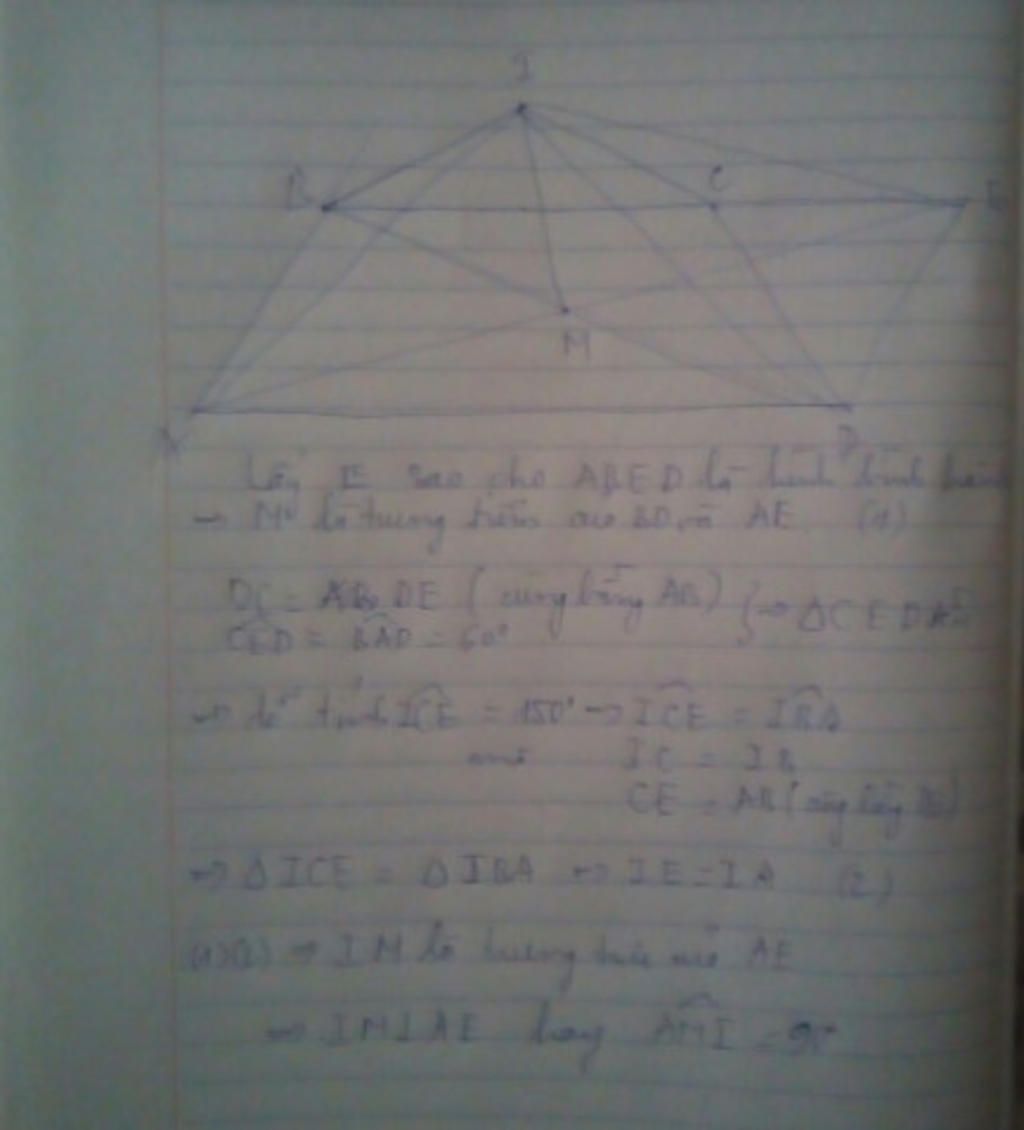 I
B C E
M
A D
Lấy E sao cho ABED là hình bình hành
→ M là trung điểm của BD và AE (1)
DC = DE (cùng bằng AB) } → ΔCED đều
CED = BAD = 60°
→ tính ICE = 150° → ICE = IBA
mà IC = IB
CE = AB (cùng bằng DE)
→ ΔICE = ΔIBA → IE = IA (2)
(1)(2) → IM là trung trực của AE
→ IM ⊥ AE hay AMI = 90°